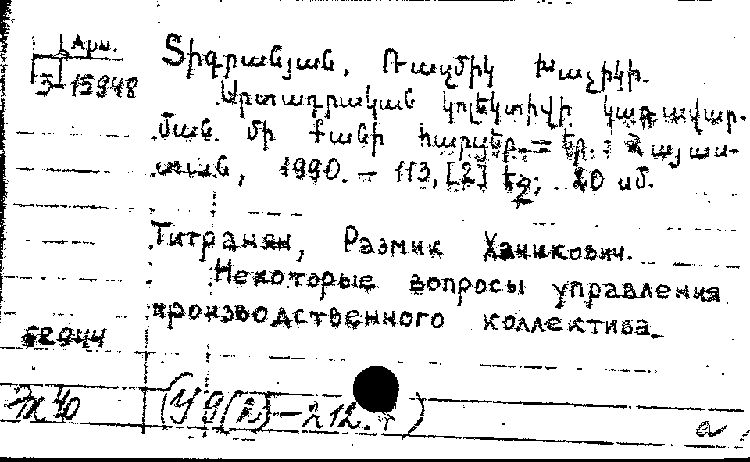 Арм.
Տիգրանյան, Ռազմիկ Խաչիկի.
5-15948
Արտադրական կոլեկտիվի կառավար-
ման մի քանի հարցեր. - Եր. : Հայաս-
տան, 1990. - 113, [2] էջ; 20 սմ.
Титранян, Размик Ханикович.
Некоторые вопросы управления
производственного коллектива.
52944
(У9(2)-212.т)
а